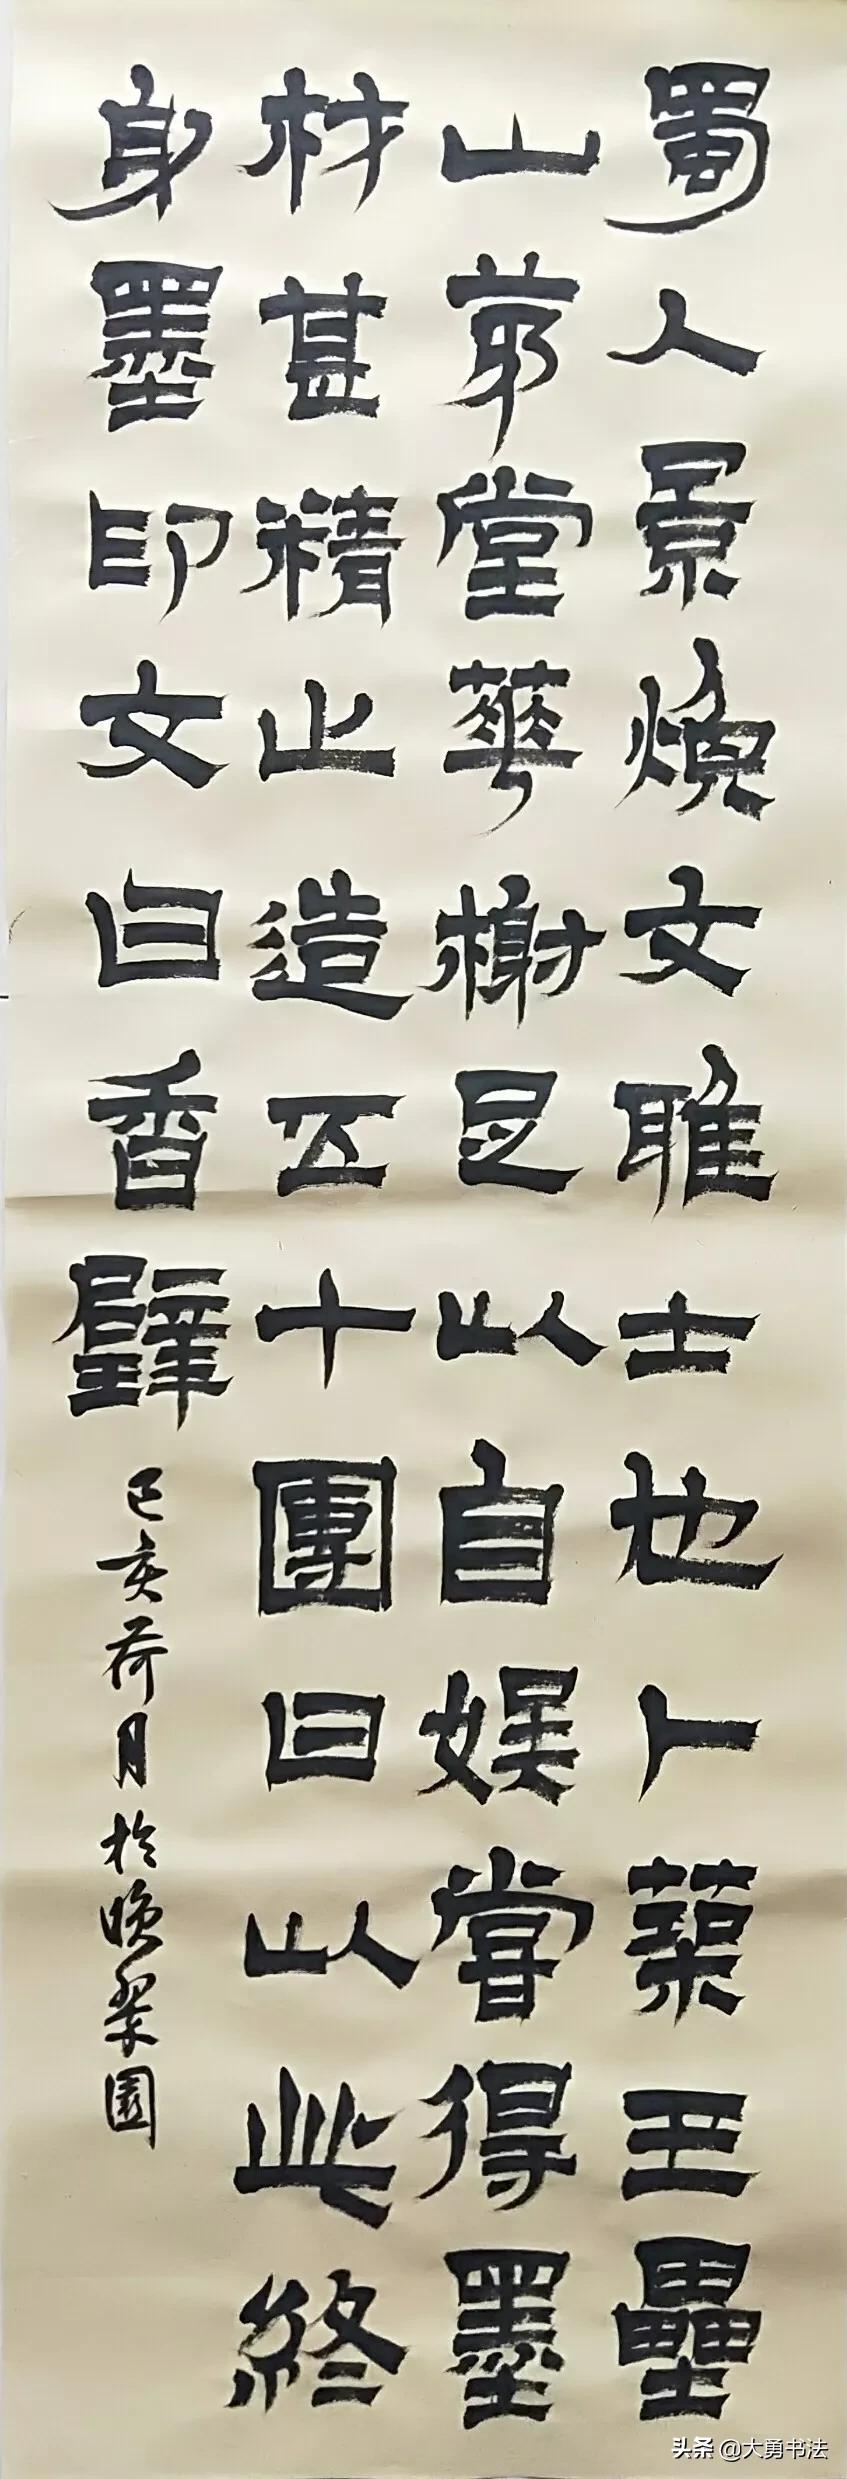 蜀人景煥文雅士也卜築玉壘
山茅堂華榭足以自娛嘗得墨
材甚精止造五十團曰以此終
身墨印文曰香璧
己亥荷月於晚翠園
头条 @大勇书法